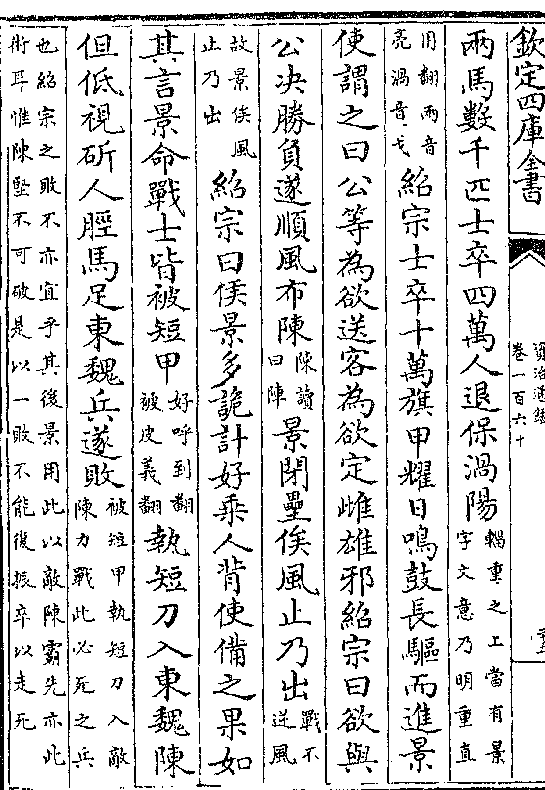 欽定四庫全書
資治通鑑
卷一百六十
兩馬數千匹士卒四萬人退保渦陽輜重之上當有景字文意乃明重直
用翻兩音亮渦音戈紹宗士卒十萬旗甲耀日鳴鼓長驅而進景
使謂之曰公等為欲送客為欲定雌雄邪紹宗曰欲與
公決勝負遂順風布陳陳讀曰陣景閉壘俟風止乃出戰不逆風
故景俟風止乃出紹宗曰侯景多詭計好乘人背使備之果如
其言景命戰士皆被短甲好呼到翻被皮義翻執短刀入東魏陳
但低視斫人脛馬足東魏兵遂敗被短甲執短刀入敵陳力戰此必死之兵
也紹宗之敗不亦宜乎其後景用此以敵陳霸先亦此術耳惟陳堅不可破是以一敗不能復振卒以走死